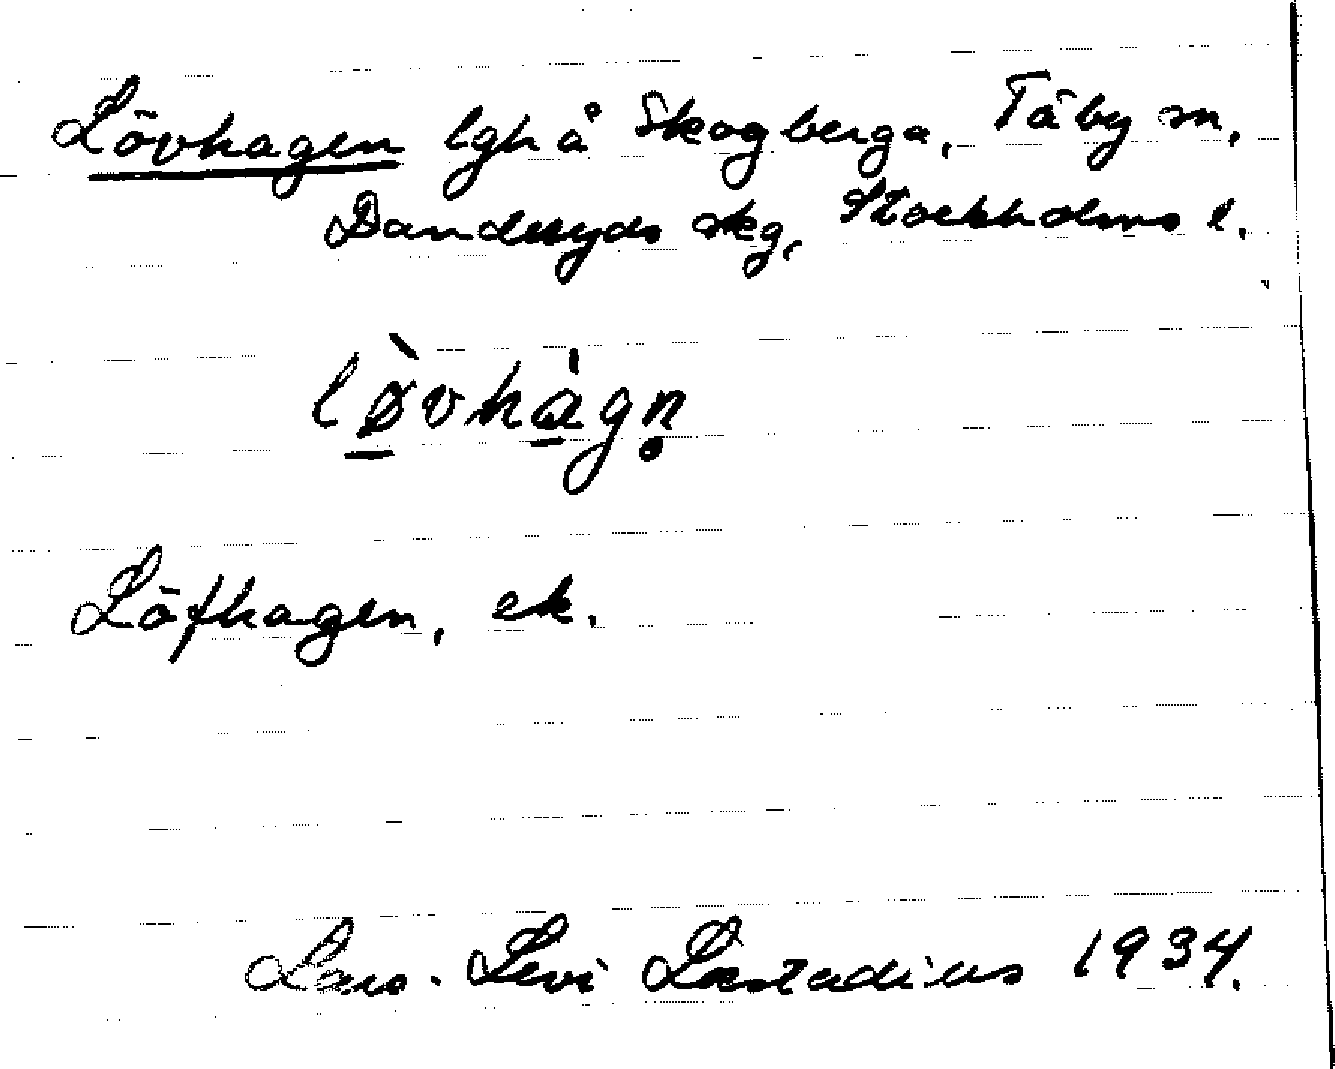 Lövhagen lgh å Skogberga, Täby sn,
Danderyds skg, Stockholms l.
lø̠̀vha̠̍gṇ
Löfhagen, ek.
Lars-Levi Læstadius 1934.